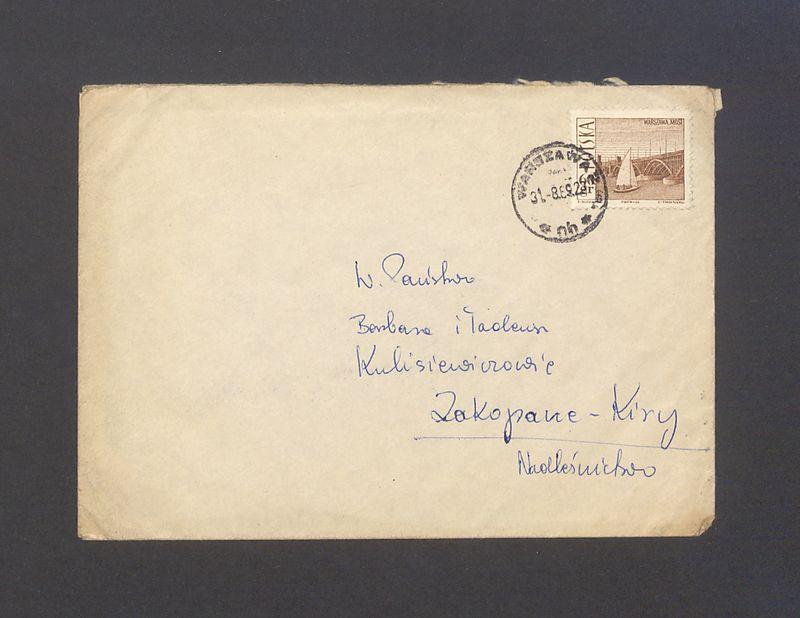 POLSKA
WARSZAWA, MOST
60 gr
WARSZAWA
31.-8.69.22
* nb *
W. Państwo
Barbara i Tadeusz
Kulisiewiczowie
Zakopane - Kiry
Nadleśnictwo